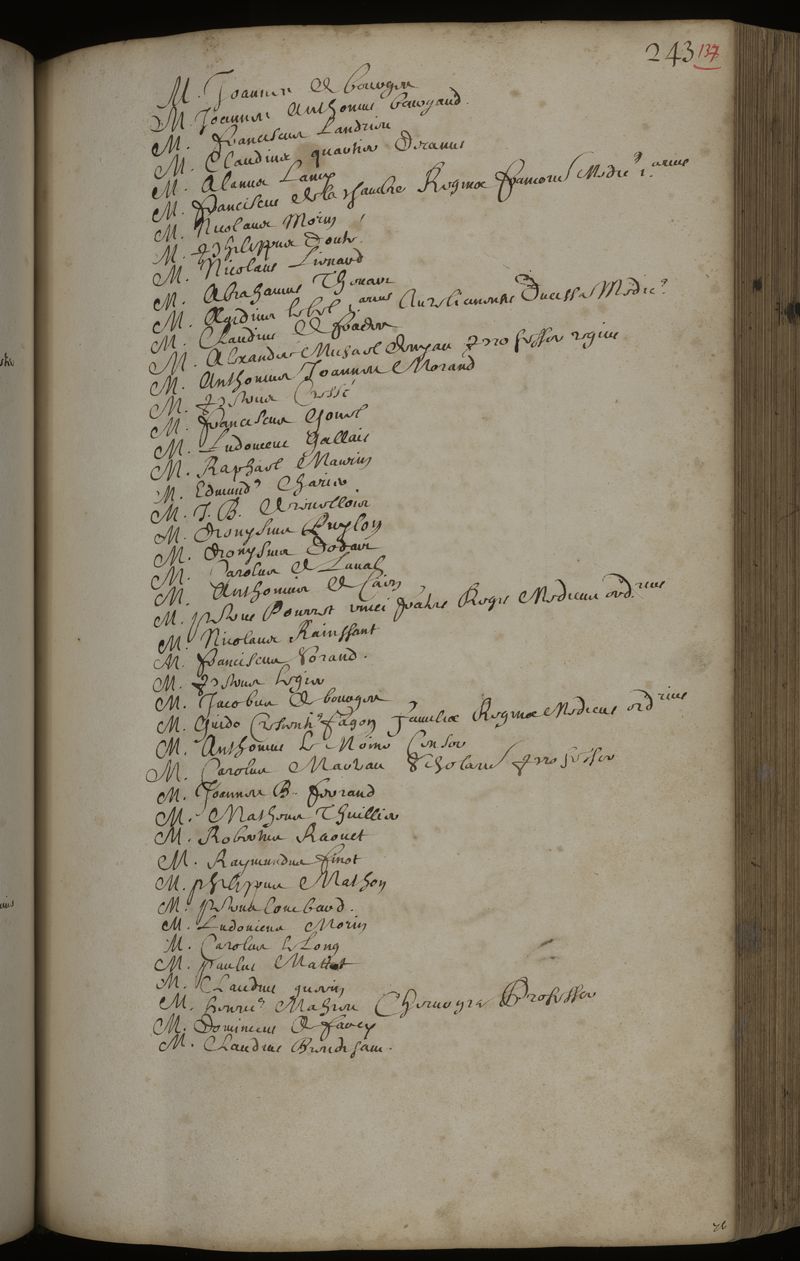 243 137
M. Joannes de bourges
M. Joannes Anthonius bourgaud.
M. franciscus Landrieu
M. Claudius quartier Decanus
M. Alanus Lamy
M. franciscus de la chambre Reginæ franciæ Medic' 1.arius
M. Nicolaus Morin
M. Philippus Doute.
M. Nicolaus Lienard
M. Abrahamus Thouart
M. Ægidius lebel 1.arius Aurelianensis Ducissæ Medic'
M. Claudius de frades
M. Alexander Michael Denyau professor regius
M. Anthonius Joannes Morand
M. Petrus Cressé
M. franciscus Gouel
M. Ludovicus Gallais
M. Raphael Maurin
M. Edmund' Charier
M. J. B. de rieuellois
M. Dionysius Puylon
M. Dionysius Dodart
M. Carolus de Laual
M. Anthonius de Caën
M. petrus Pourret unici fratris Regis Medicus ord.rius
M. Nicolaus Rainssant
M. franciscus Vorand.
M. Petrus legier
M. Jacobus de bourges
M. Guido Crescent' fagon familiæ Reginæ Medicus ordrius
M. Anthonius le Moine Censor
M. Carolus Marteau Scholarum professor
M. Joannes B. ferrand
M. Matheus Thuillier
M. Robertus Raouet
M. Raymundus finot
M. philippus Mathon
M. petrus lombard.
M. Ludovicus Morin
M. Carolus le Long
M. paulus Mattot
M. Claudius guerin
M. henric' Mahieu Chirurgiæ Professor
M. Dominicus de farcy
M. Claudius Berger.